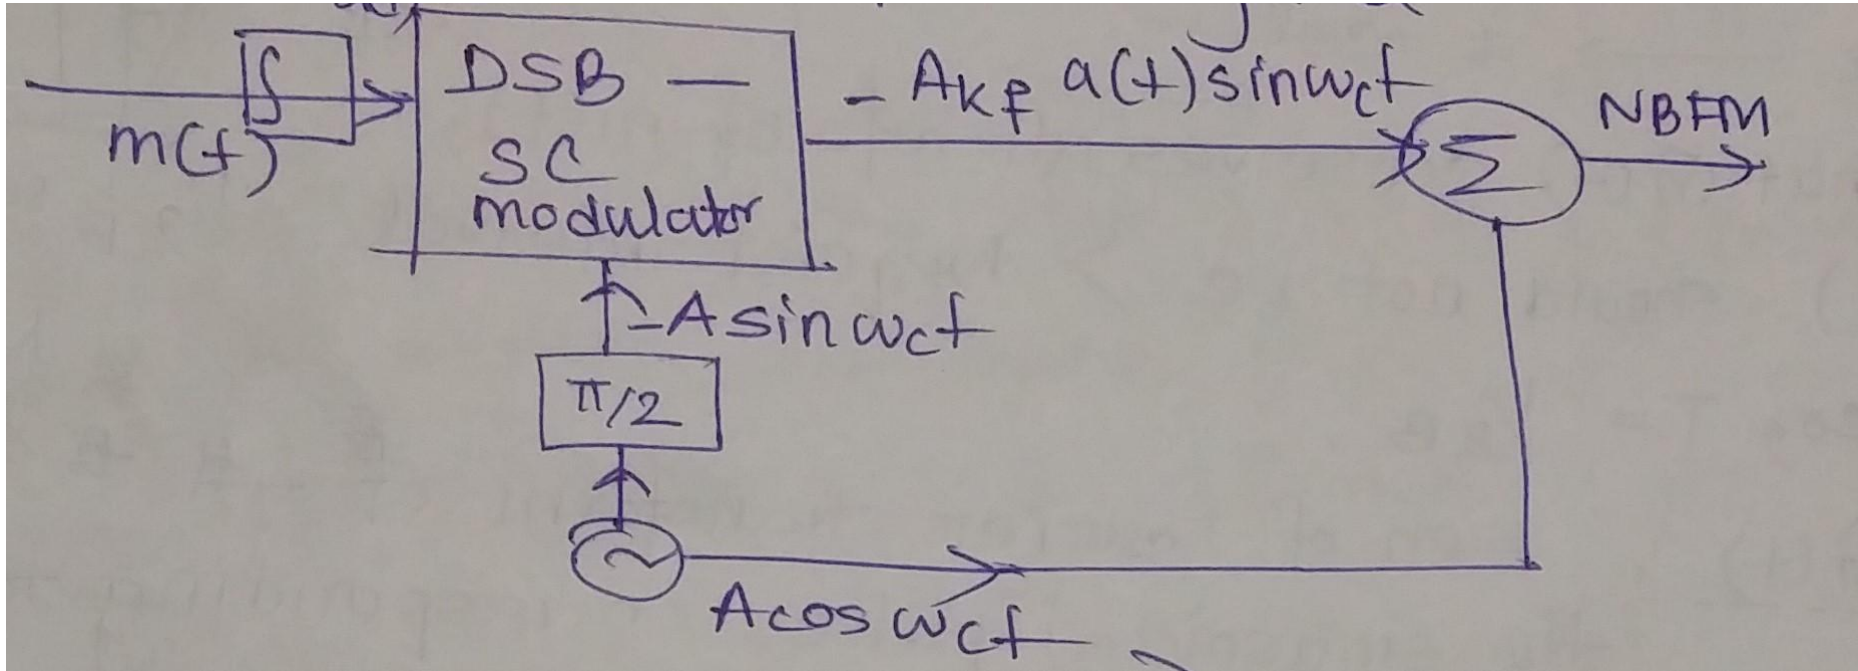 ∫
m(t)
DSB —
SC
modulator
- Akf a(t) sinwct
Σ
NBFM
-A sin wct
π/2
~
A cos wct